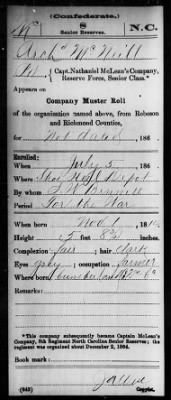 (Confederate.)
Mc 8 N.C.
Senior Reserves.
Arch McNeill
Capt. Nathaniel McLean's Company,
Reserve Force, Senior Class.*
Appears on
Company Muster Roll
of the organization named above, from Robeson
and Richmond Counties,
for Not dated, 186
Enrolled:
When July 5, 186
Where Shoe Heel Depot
By whom
Period For the War
When born Nov 1, 18
Height 5 feet 8 inches.
Complexion fair; hair dark
Eyes gray; occupation farmer
Where born Cumberland Co
Remarks:
*This company subsequently became Captain McLean's
Company, 8th Regiment North Carolina Senior Reserves; the
regiment was organized about December 2, 1864.
Book mark:
(943) Copyist.